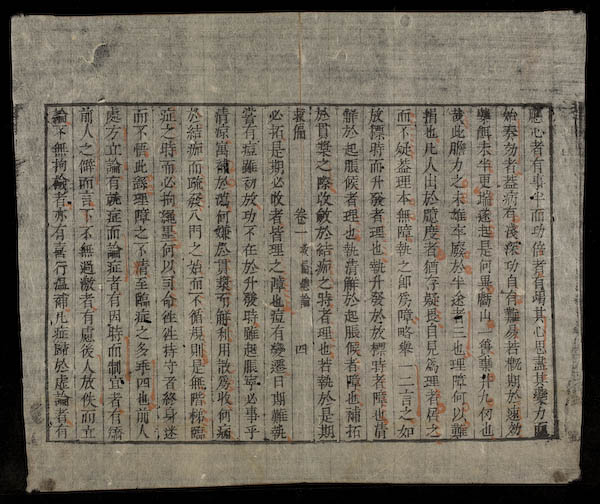 應心者有事半而功倍者有竭其心思盡其變力而
始奏効者蓋病有淺深功自有難易若概期於速効
藥餌未半更端遂起是何異斸山一簣棄井九仞也
哉此膽力之未雄牢廢於半途者三也理障何以難
捐也凡人出於臆度者猶存疑畏自見為理者信之
而不疑蓋理本無障執之卽為障略舉一二言之如
放標時而升發者理也執升發於放標時者障也清
解於起脹候者理也執清解於起脹候者障也補拓
於貫漿之際收斂於結痂之時者理也若執於是期
救偏 卷一 總論 四
必拓是期必收者皆理之障也痘有變遷日期難執
嘗有痘雖初放功不在於升發時雖起脹寧必事乎
清凉寓補於瀉何嫌於貫漿而解利用散為收何病
於結痂而疏發入門之始而不循規則是無階梯臨
症之時而必拘繩墨何以司命徃徃持守者終身迷
而不悟此爲理障之不清至臨症之多乖四也前人
處方立論有就症而論症者有因時而制宜者有矯
前人之僻而言下不無過激者有慮後人放佚而立
論不無拘檢者亦有喜行溫補凡症歸於虛論者有